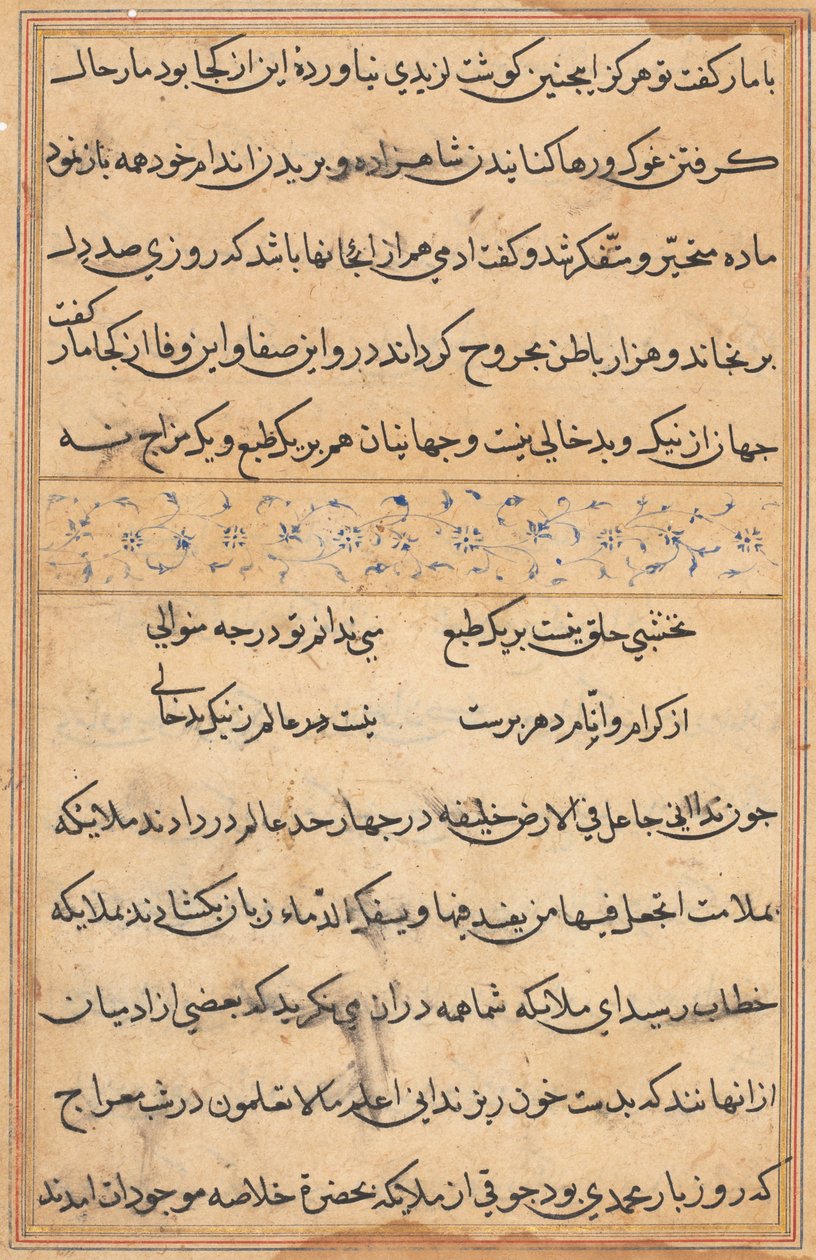 با مار کفت تو هرکز ایچنین کوشت لزیدی نیاوردهٔ این از کجا بود مار حال
کرفتن غوک و رها کنانیدن شاهزاده و بریدن اندام خود همه باز نمود
ماده متحیّر و متّفکر شد و کفت ادمی هم از انجانها باشد که روزی صد دل
برنجاند و هزار باطن مجروح کرداند در و این صفا و این وفا از کجا مار کفت
جهان از نیک و بد خالی نیست و جهانیان هم بر یک طبع و یک مزاج نه
نخشبی خلق نیست بر یک طبع می ندانم تو در چه منوالی
از کرام و انّام دهر برست نیست در عالم ز نیک بد خالی
جون ندا انی جاعل فی الارض خلیفه در جهار حد عالم در دادند ملایکه
بملامت اتجعل فیها من یفسد فیها و یسفک الدّماء زبان بکشادند بملایکه
خطاب رسید ای ملایکه شما همه در ان می نکرید که بعضی از ادمیان
از انها نند که بدست خون ریزند انی اعلم مالا تعلمون در شب معراج
که روز بار محمدی بود جوقی از ملایکه بحضرة خلاصه موجودات امدند